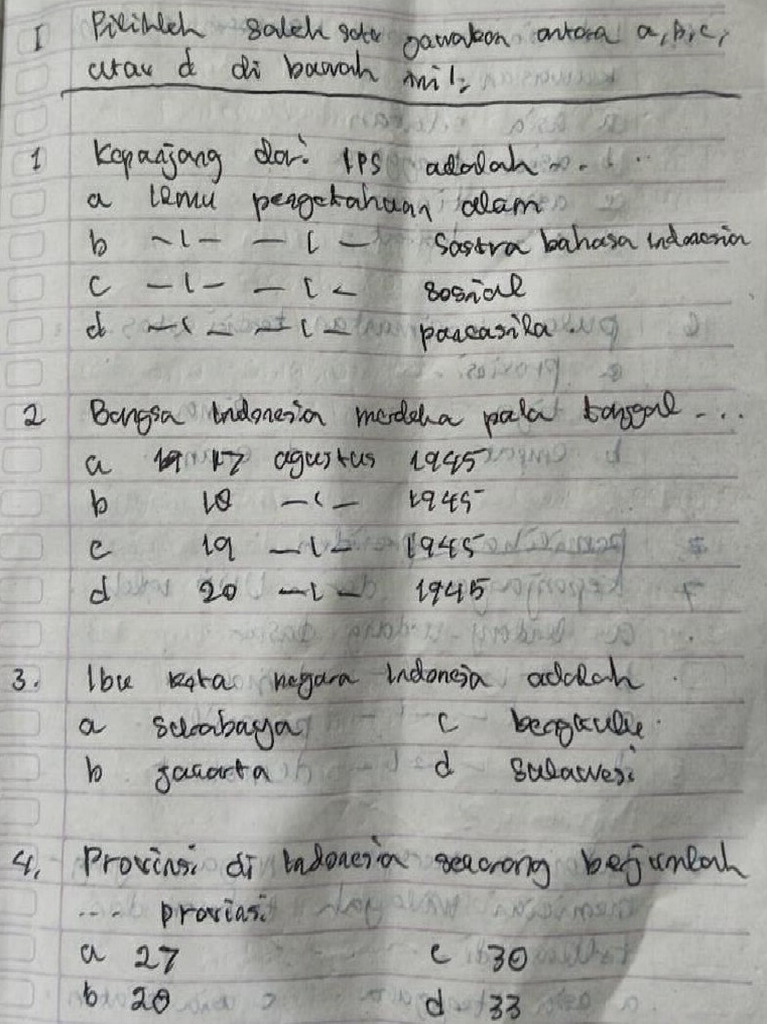 I Pilihlah salah satu jawaban antara a, b, c,
atau d di bawah ini!
1 Kepanjang dari IPS adalah ....
a Ilmu pengetahuan alam
b -〃- -〃- Sastra bahasa Indonesia
c -〃- -〃- sosial
d -〃- -〃- pancasila
2 Bangsa Indonesia merdeka pada tanggal ...
a 17 agustus 1945
b 18 -〃- 1945
c 19 -〃- 1945
d 20 -〃- 1945
3. Ibu kota negara Indonesia adalah
a surabaya c bengkulu
b jakarta d Sulawesi
4. Provinsi di Indonesia sekarang berjumlah
.... provinsi
a 27 c 30
b 28 d 33